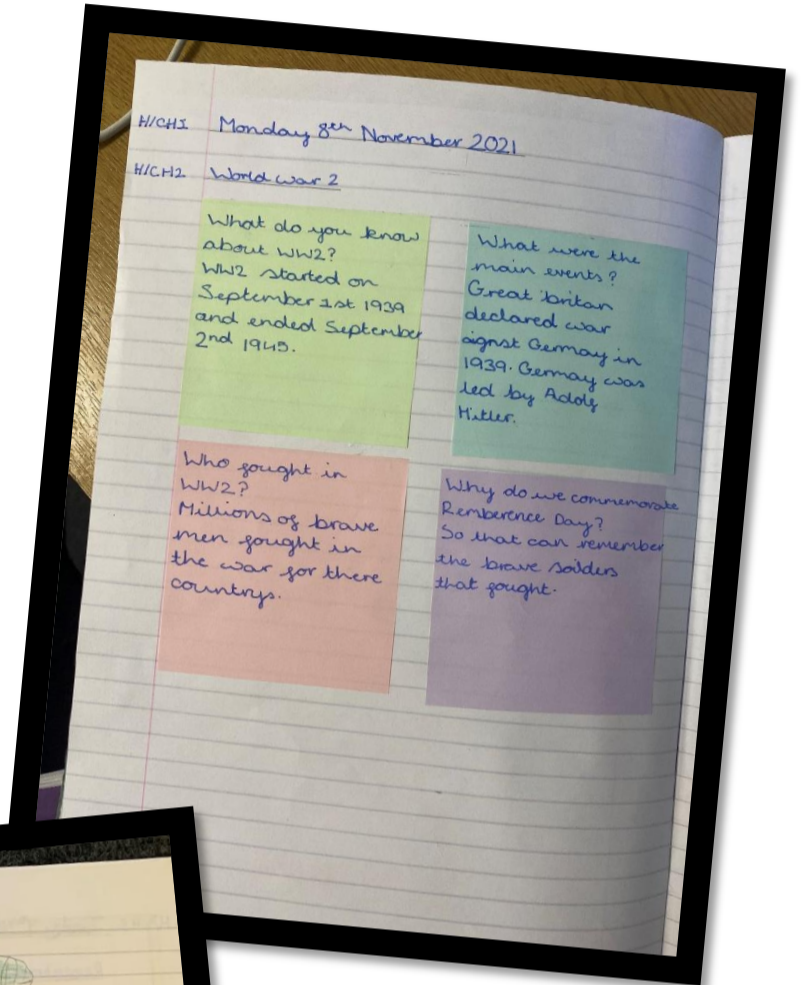 H/CH1 Monday 8th November 2021
H/CH2 World war 2
What do you know
about WW2?
WW2 started on
September 1st 1939
and ended September
2nd 1945.
What were the
main events?
Great britan
declared war
aignst Germay in
1939. Germay was
led by Adolf
Hitler.
Who fought in
WW2?
Millions of brave
men fought in
the war for there
countrys.
Why do we commemorate
Remberence Day?
So that can remember
the brave soilders
that fought.